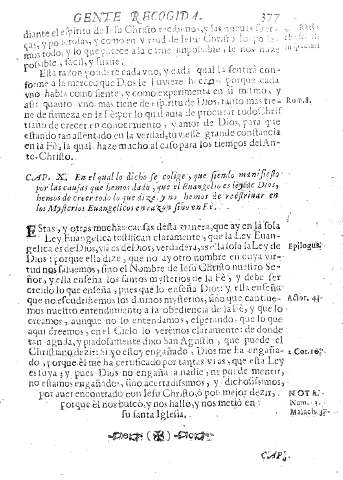 GENTE RECOGIDA. 377
diante el espiritu de Iesu Christo
mos todo, y lo que parece a la carne impossible, le nos haze
possible, facil, y suaue.
Esta razon pondere cada vno, y cada qual la sentirà con-
forme a la merced que Dios le huviere hecho, porque cada
vno habla como siente, y como experimenta en si mismo, y
assi quanto vno mas tiene de espiritu de Dios, tanto mas tie-
ne de firmeza en la Fè; por lo qual aura de procurar todo Christ
tiano de crecer en conocimiento, y amor de Dios, para que
estando tan assentado en la verdad, tuviesse grande constancia
en la Fè, la qual haze mucho al caso para los tiempos del An-
te-Christo.
Rom. 8.
CAP. X. En el qual lo dicho se colige, que siendo manifiesto
por las causas que hemos dado, que el Euangelio es ley de Dios,
hemos de creer todo lo que dize, y no hemos de
los Mysterios Euangelicos en razon sino en Fè.
ESTAS, y otras muchas causas desta manera, que ay en la sola
Ley Euangelica testifican claramente, que la Ley Euan-
gelica es de Dios, via es del Dios, verdadera, es ella sola la Ley de
Dios; porque ella dize, que no ay otro nombre en cuya vir-
tud nos saluemos, sino el Nombre de Iesu Christo nuestro Se-
ñor, y ella enseña los santos mysterios de la Fè, y debe ser
creido lo que enseña, pues que lo enseña Dios; y ella enseña
que no escudriñemos los diuinos mysterios, sino que cautiue-
mos nuestro entendimiento a la obediencia de la Fè, y que lo
creamos, aunque no lo entendamos, esperando que lo que
aqui creemos, en el Cielo lo verèmos claramente: de donde
tan aguda, y piadosamente dixo San Agustin, que puede el
Christiano dezir: Si yo estoy engañado, Dios me ha engaña-
do, porque èl me ha certificado por tantas vias, que esta Ley
es suya; y pues Dios no engaña a nadie, ni puede mentir,
no estamos engañados, sino acertadissimos, y dichosissimos,
por auer encontrado con Iesu Christo, ò por mejor dezir,
porque èl nos buscò, y nos hallò, y nos metiò en
su santa Iglesia.
Epilogus.
Actor. 4.
2. Cor. 10.
NOTA.
Num.
Malach. 3.
CAP.